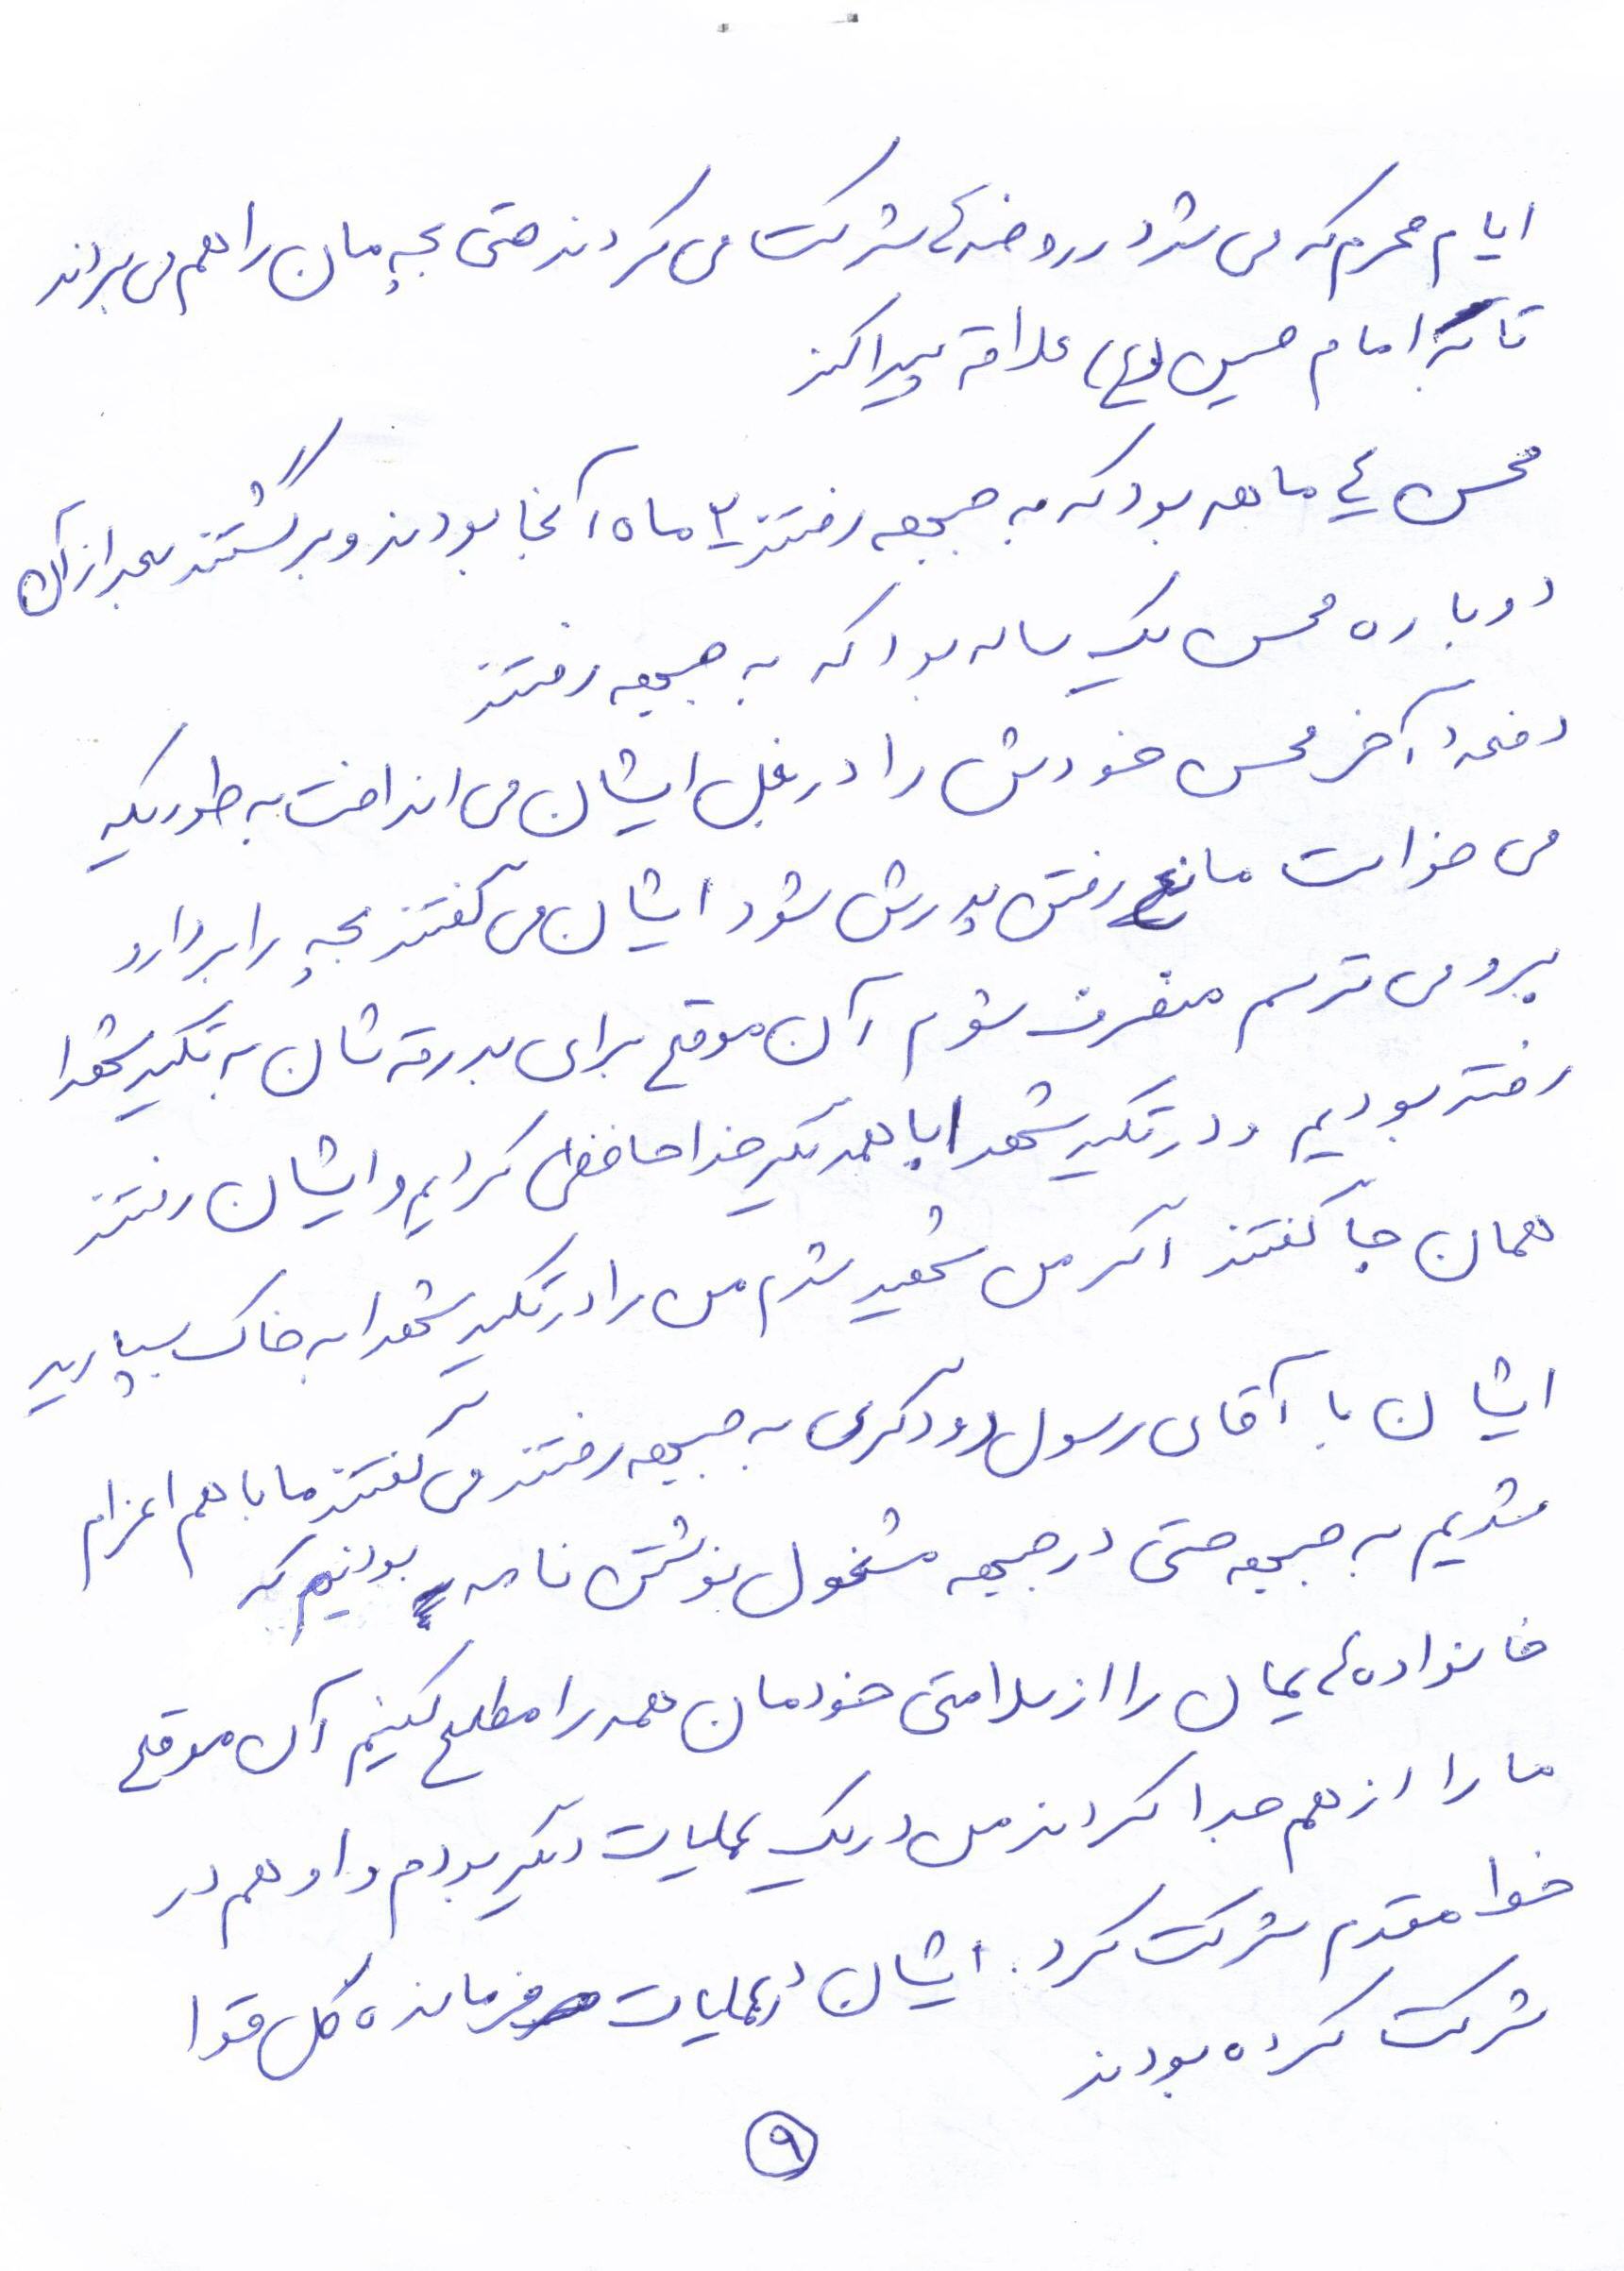 ایام محرم که می شد در روضه ها شرکت می کردند حتی بچه مان را هم می بردند
تا به امام حسین (ع) علاقه پیدا کند
محسن ۴ ماهه بود که به جبهه رفتند ۳ ماه آنجا بودند و برگشتند بعد از آن
دوباره محسن یک ساله بود که به جبهه رفتند
دفعه آخر محسن خودش را در بغل ایشان می انداخت به طوریکه
می خواست مانع رفتن پدرش شود ایشان می گفتند بچه را بردارد
برو می ترسم منصرف شوم آن موقع برای بدرقه شان به تکیه شهدا
رفته بودیم و در تکیه شهدا با همدیگر خداحافظی کردیم و ایشان رفتند
همان جا گفتند اگر من شهید شدم من را در تکیه شهدا به خاک بسپارید
ایشان با آقای رسول رودگری به جبهه رفتند می گفتند ما با هم اعزام
شدیم به جبهه حتی در جبهه مشغول نوشتن نامه بودیم که
خانواده هایمان را از سلامتی خودمان همه را مطلع کنیم آن موقع
ما را از هم جدا کردند من در یک عملیات دیگر بودم و او هم در
خط مقدم شرکت کرد. ایشان در عملیات فرمانده کل قوا
شرکت کرده بودند
۹